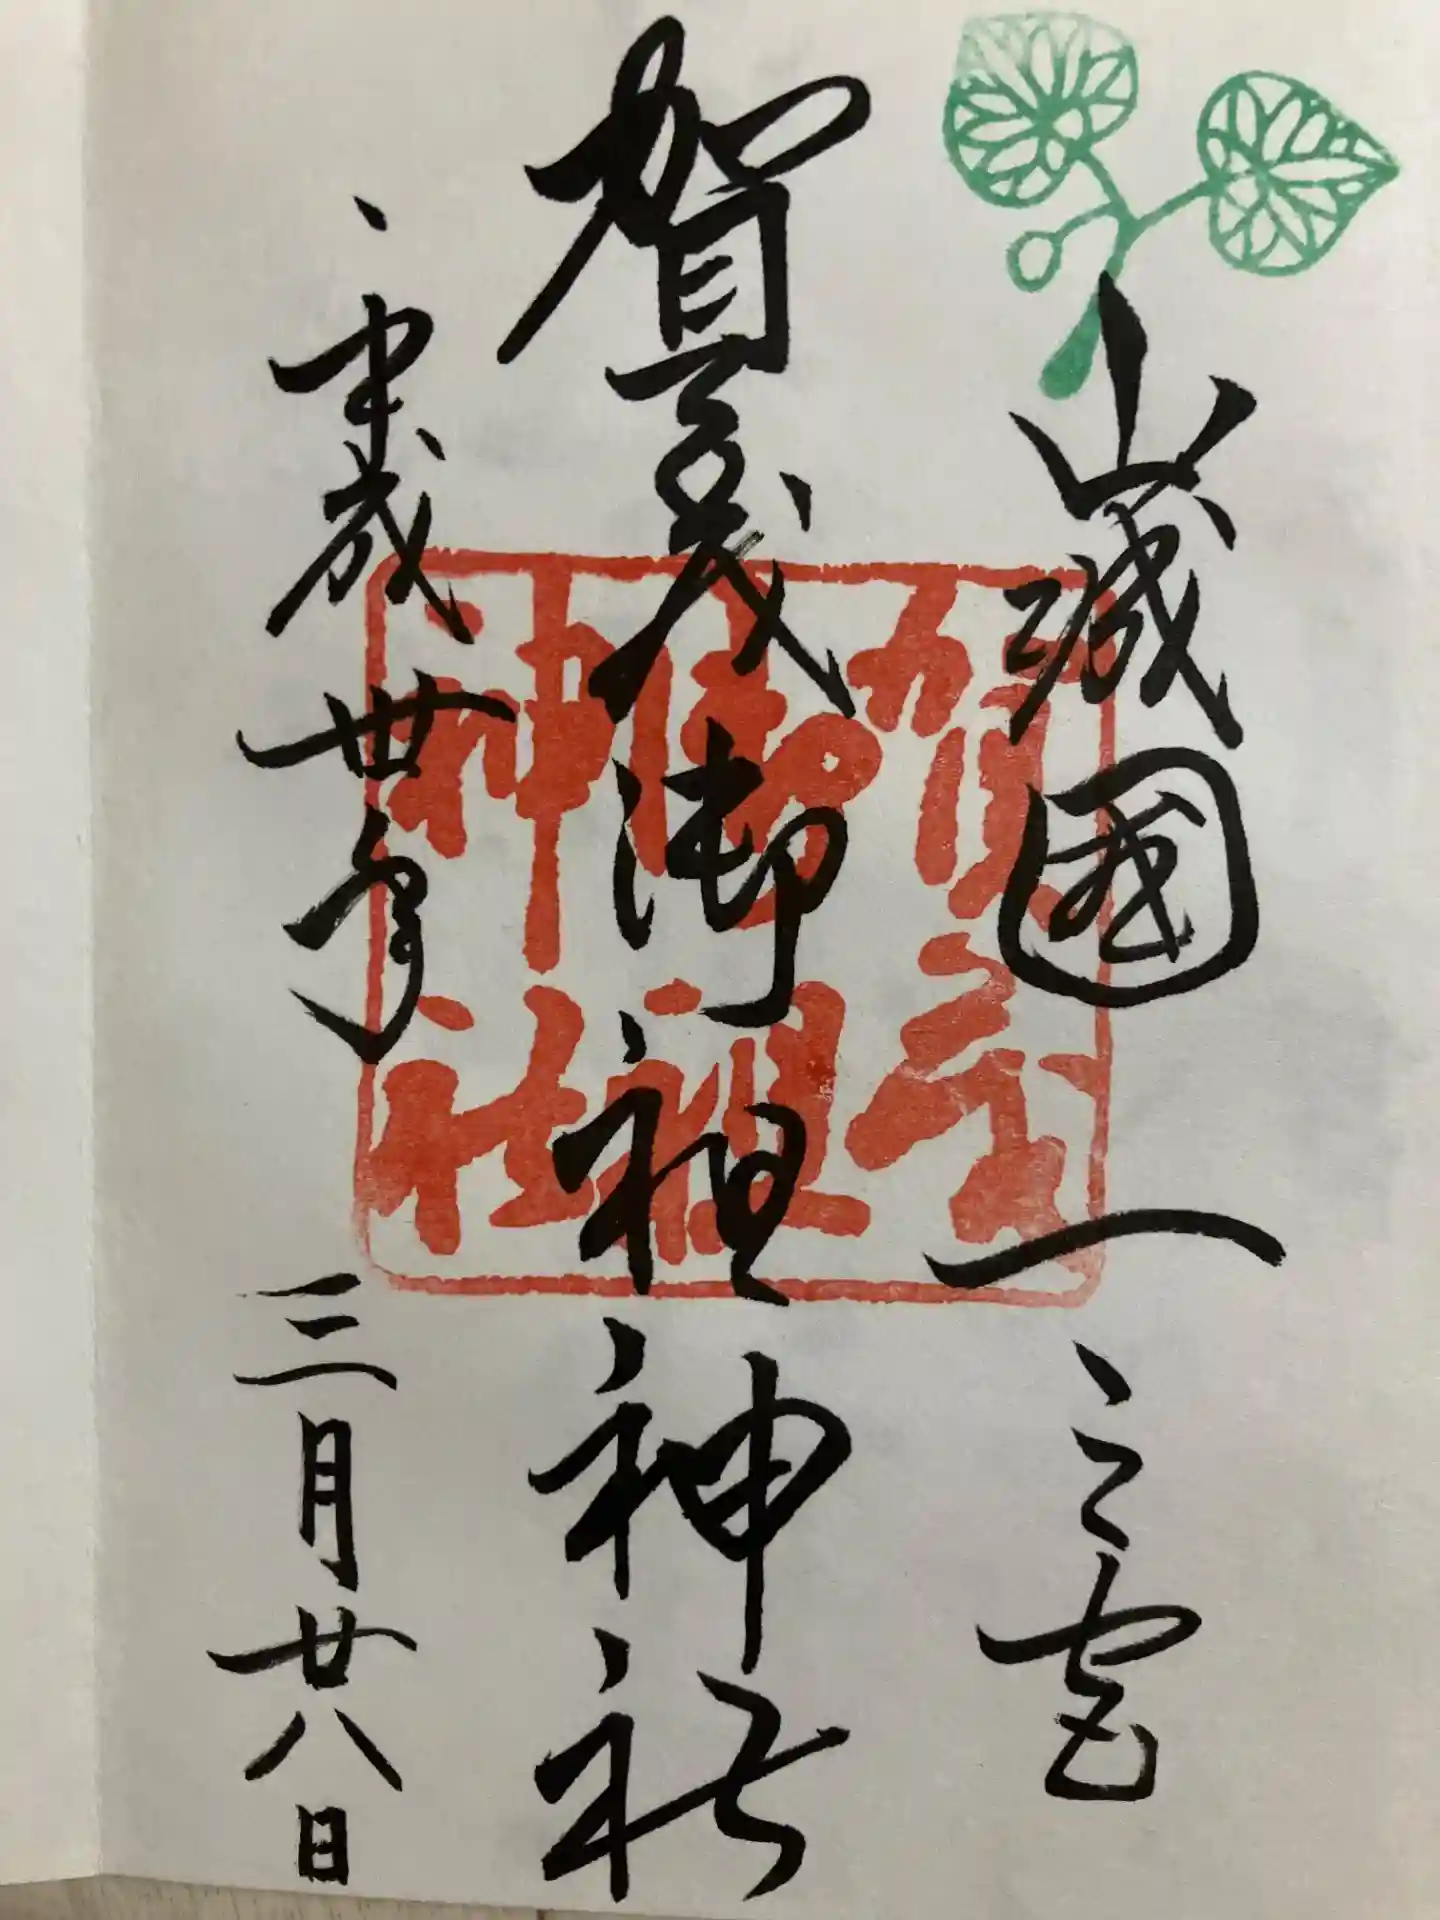 山城國一之宮
賀茂御祖神社
平成卅年 三月廿八日
賀茂
御祖
神社